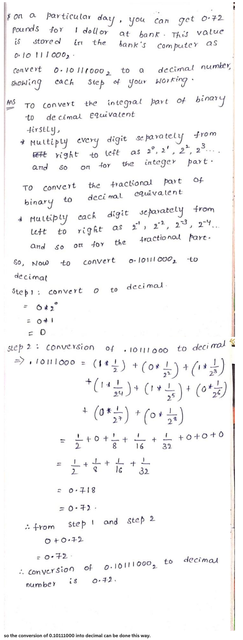 on a particular day, you can get 0.72
pounds for 1 dollar at bank. This value
is stored in the bank's computer as
0.10 111 000₂.
convert 0.10111000₂ to a decimal number,
showing each step of your working.
Ans To convert the integral part of binary
to decimal equivalent
firstly,
* Multiply every digit separately from
right to left as 2⁰, 2¹, 2², 2³...
and so on for the integer part.
To convert the fractional part of
binary to decimal equivalent
* Multiply each digit separately from
left to right as 2⁻¹, 2⁻², 2⁻³, 2⁻⁴..
and so on for the fractional part.
So, Now to convert 0.10111000₂ to
decimal
Step 1: convert 0 to decimal.
= 0*2⁰
= 0*1
= 0
Step 2: conversion of .10111000 to decimal
=> .10111000 = (1*1/2) + (0*1/2²) + (1*1/2³)
+ (1*1/2⁴) + (1*1/2⁵) + (0*1/2⁶)
+ (0*1/2⁷) + (0*1/2⁸)
= 1/2 + 0 + 1/8 + 1/16 + 1/32 + 0+0+0
= 1/2 + 1/8 + 1/16 + 1/32
= 0.718
= 0.72.
∴ from step 1 and step 2
0+0.72
= 0.72.
∴ conversion of 0.10111000₂ to decimal
number is 0.72.
so the conversion of 0.10111000 into decimal can be done this way.